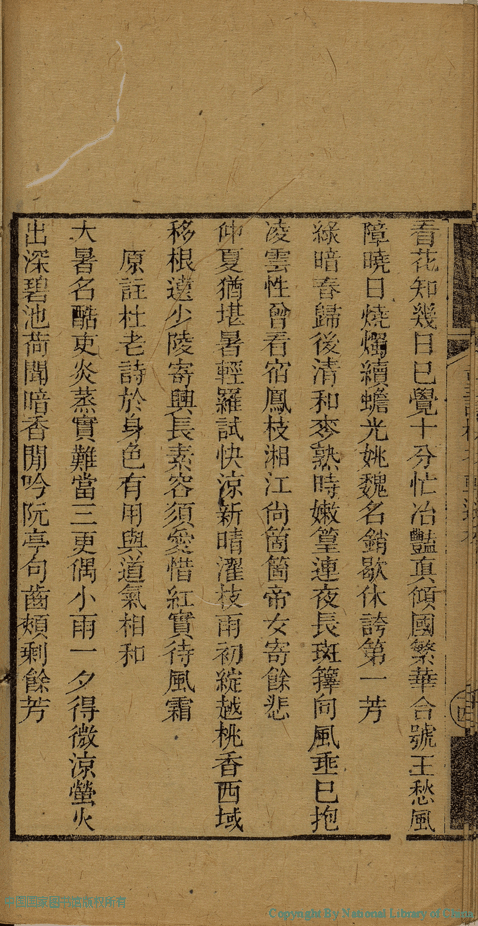 看花知幾日已覺十分忙冶豔真傾國繁華合號王愁風
障曉日燒燭續蟾光姚魏名銷歇休誇第一芳
綠暗春歸後清和麥熟時嫩篁連夜長斑籜向風垂已抱
凌雲性曾看宿鳳枝湘江尙箇箇帝女寄餘悲
仲夏猶堪暑輕羅試快涼新晴濯枝雨初綻越桃香西域
移根遠少陵寄興長素容須愛惜紅實待風霜
原註杜老詩於身色有用與道氣相和
大暑名酷吏炎蒸實難當三更偶小雨一夕得微涼螢火
出深碧池荷聞暗香閒吟阮亭句齒頰剩餘芳
中国国家图书馆版权所有
Copyright By National Library of China